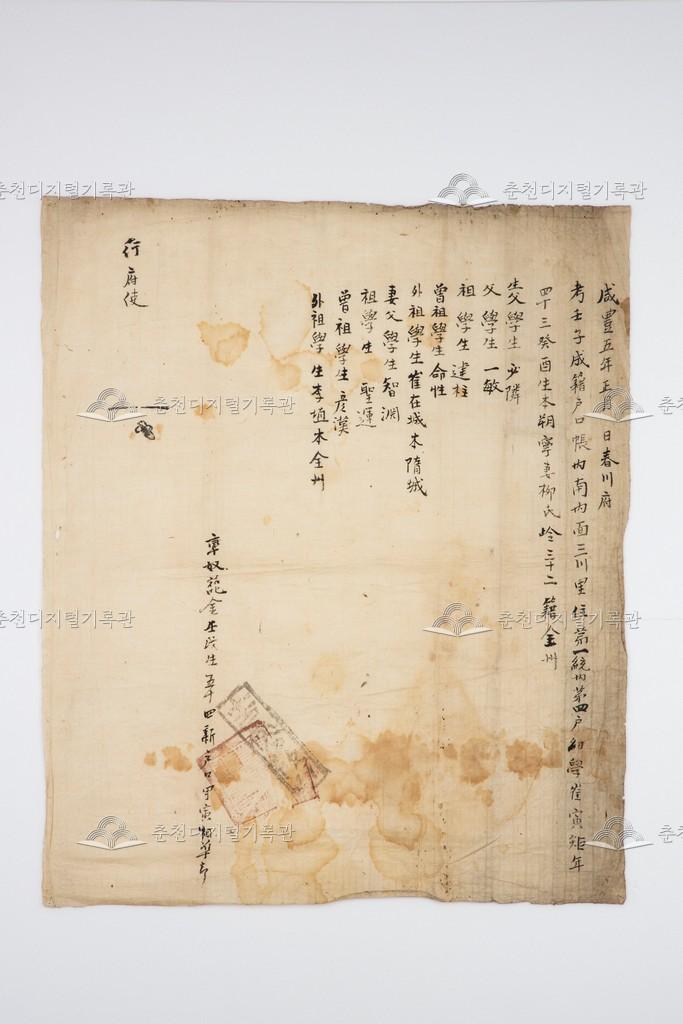 咸豊五年五月 日春川府
考壬子成籍户口帳內南內面三川里住第一統內第四户幼學崔寅矩年
四十三癸酉生本朔寧妻柳氏齡三十二籍全州
生父學生必隣
父學生一敏
祖學生建柱
曾祖學生命性
外祖學生崔在城本隋城
妻父學生智淵
祖學生聖運
曾祖學生彦漢
外祖學生李埴本全州
率奴 金 生 五十四新户口甲寅
行府使
춘천디지털기록관
춘천디지털기록관
춘천디지털기록관
춘천디지털기록관
춘천디지털기록관
춘천디지털기록관
춘천디지털기록관
춘천디지털기록관